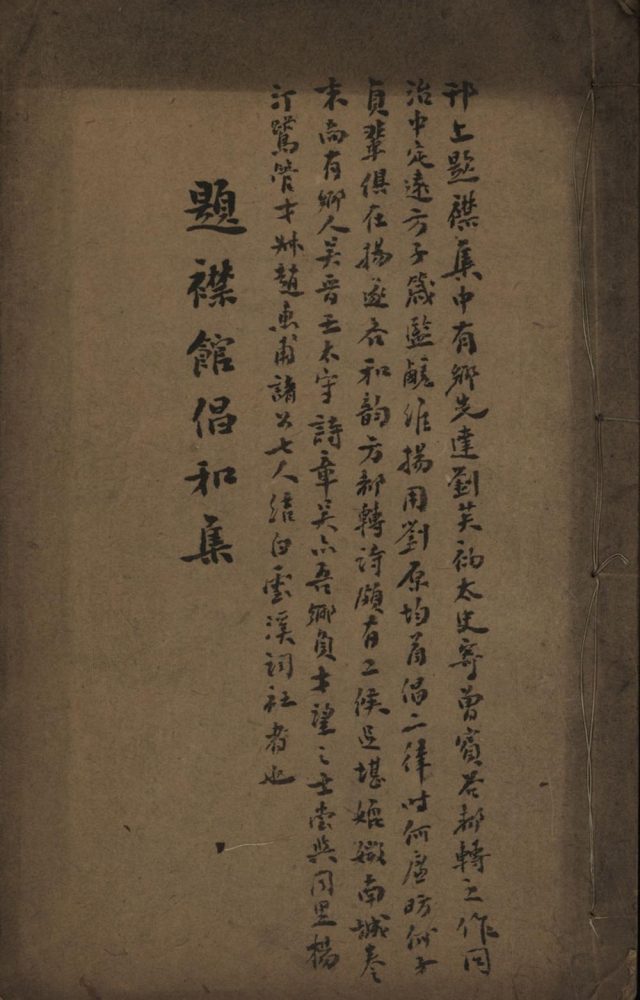 邗上題襟集中有鄉先達劉芙初太史寄曾賓谷都轉之作同
治中定遠方子箴監鹺維揚用劉原均首倡二律時何廉昉何子
貞輩俱在揚遂各和韵方都轉詩頗有工候足堪媲嫩南城卷
末尚有鄉人吳晋壬太守詩章吳亦吾鄉負才望之士嘗與同里楊
汀鷺管才叔趙惠甫諸公七人結白雲溪詞社者也
題襟館倡和集